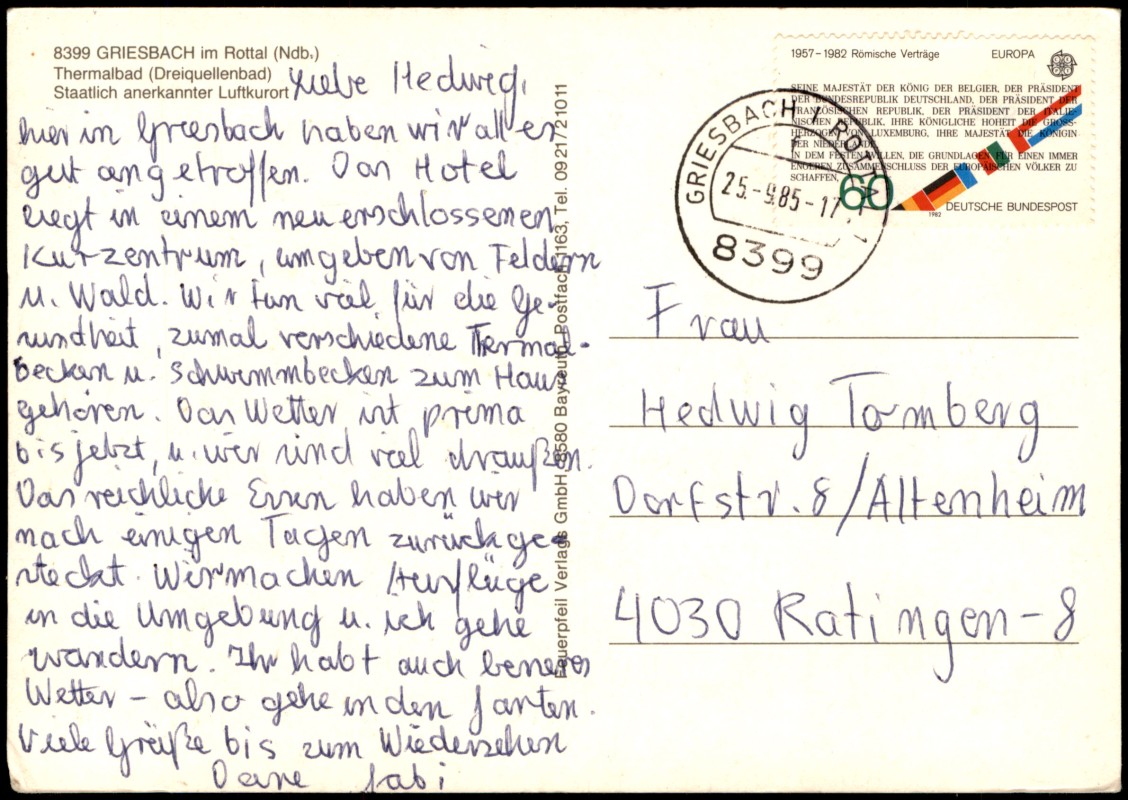 8399 GRIESBACH im Rottal (Ndb.)
Thermalbad (Dreiquellenbad)
Staatlich anerkannter Luftkurort
Liebe Hedwig,
hier in Griesbach haben wir alles
gut angetroffen. Das Hotel
liegt in einem neu erschlossenen
Kurzentrum, umgeben von Feldern
u. Wald. Wir tun viel für die Ge-
sundheit, zumal verschiedene Thermal-
becken u. Schwimmbecken zum Haus
gehören. Das Wetter ist prima
bis jetzt, u. wir sind viel draußen.
Das reichliche Essen haben wir
nach einigen Tagen zurückge-
steckt. Wir machen Ausflüge
in die Umgebung u. ich gehe
wandern. Ihr habt auch besseres
Wetter – also gehe in den Garten.
Viele Grüße bis zum Wiedersehen
Deine Gabi
Feuerpfeil Verlags GmbH, 8580 Bayreuth, Postfach 1163, Tel. 0921/21011
1957–1982 Römische Verträge EUROPA
SEINE MAJESTÄT DER KÖNIG DER BELGIER, DER PRÄSIDENT
DER BUNDESREPUBLIK DEUTSCHLAND, DER PRÄSIDENT DER
FRANZÖSISCHEN REPUBLIK, DER PRÄSIDENT DER ITALIE-
NISCHEN REPUBLIK, IHRE KÖNIGLICHE HOHEIT DIE GROSS-
HERZOGIN VON LUXEMBURG, IHRE MAJESTÄT DIE KÖNIGIN
DER NIEDERLANDE
IN DEM FESTEN WILLEN, DIE GRUNDLAGEN FÜR EINEN IMMER
ENGEREN ZUSAMMENSCHLUSS DER EUROPÄISCHEN VÖLKER ZU
SCHAFFEN,
60
1982
DEUTSCHE BUNDESPOST
GRIESBACH I ROTTAL
25.-9.85-17
8399
Frau
Hedwig Tomberg
Dorfstr. 8/Altenheim
4030 Ratingen-8